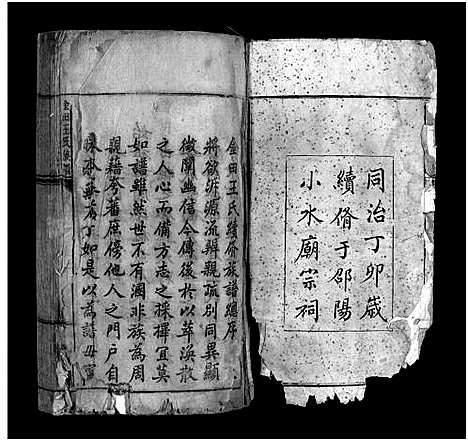 同治丁卯歲
續脩于邵陽
小水廟宗祠
金田王氏續脩族譜總序
將欲泝源流辨親疏別同異顯
微闡幽信今傳後於以萃渙散
之人心而備方志之採擇宜莫
如譜雖然世不有溷非族為周
親藉夸蕃庶傍他人之門戶自
如是以為譜毋寧
金田王氏族譜